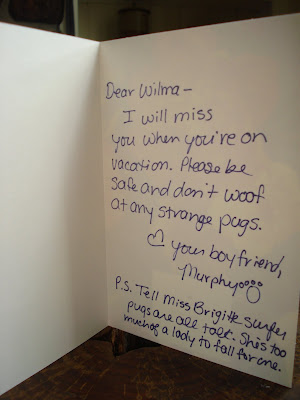 Dear Wilma-
I will miss
you when you're on
vacation. Please be
safe and don't woof
at any strange pugs.
♡ your boyfriend,
Murphy
P.S. Tell Miss Brigitte surfer
pugs are all talk. She's too
much of a lady to fall for one.